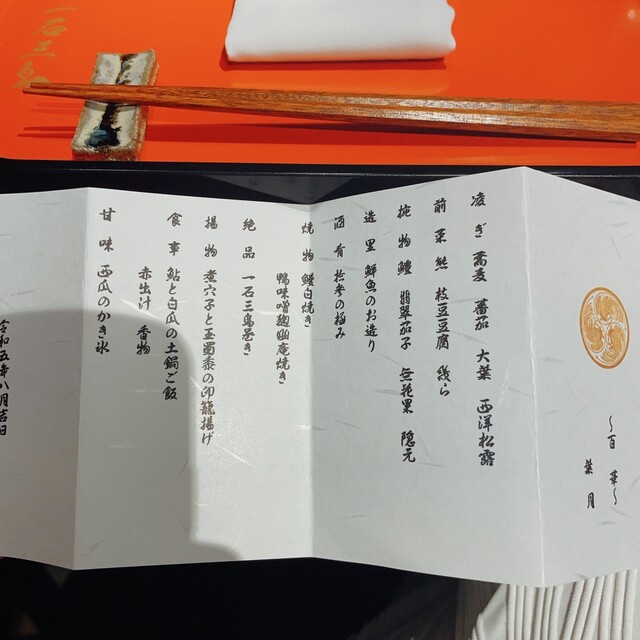 一石三鳥
〜百華〜
葉月
凌ぎ 蕎麦 蕃茄 大葉 西洋松露
前菜 熊 枝豆豆腐 幾ら
椀物 鱧 翡翠茄子 無花果 隠元
造里 鮮魚のお造り
酒肴 拾参の極み
焼物 鰻白焼き
鴨味噌麹幽庵焼き
絶品 一石三鳥巻き
揚物 煮穴子と玉蜀黍の印籠揚げ
食事 鮎と白瓜の土鍋ご飯
赤出汁 香物
甘味 西瓜のかき氷
令和五年八月吉日